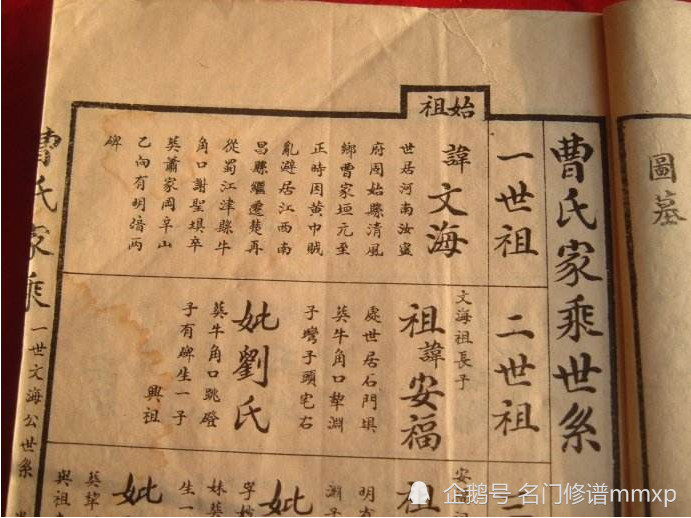 圖墓
曹氏家乘世系
始祖
一世祖
諱文海
世居河南汝寧
府固始縣清風
鄉曹家垣元至
正時因黃巾賊
亂避居江西南
昌縣繼遷楚再
從蜀江津縣牛
角口謝聖垻卒
葬蕭家岡卓山
乙向有明堷兩
碑
二世祖
文海祖長子
祖諱安福
處世居石門垻
葬牛角口犂淵
子灣子頭宅右
妣劉氏
葬牛角口跳磴
子有碑生一子
興祖
三
安
祖
明有
淵子
妣
妹葬
生一
妣
葬
與祖
曹氏家乘
一世文海公世系
企鹅号 名门修谱mmxp